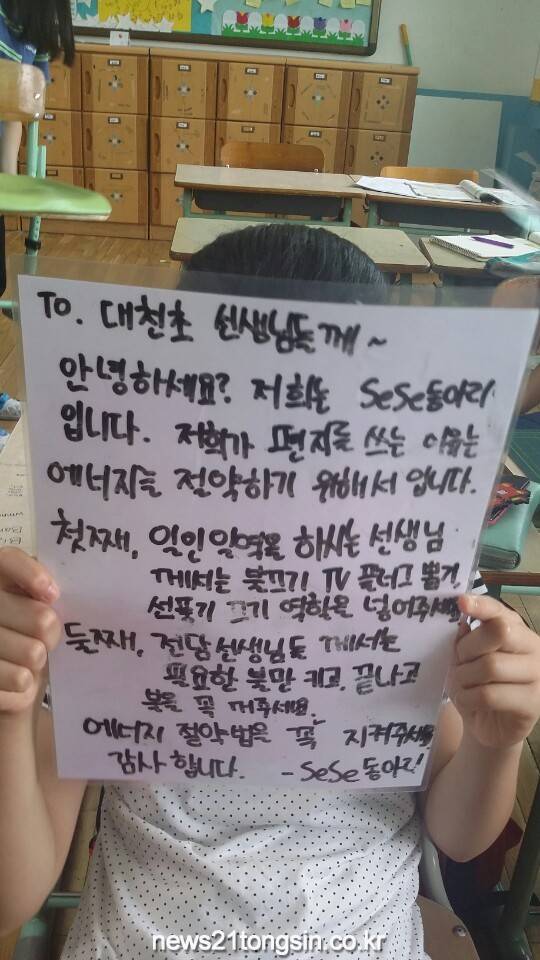 To. 대천초 선생님들께~
안녕하세요? 저희는 SeSe동아리
입니다. 저희가 편지를 쓰는 이유는
에너지를 절약하기 위해서 입니다.
첫째, 일인일역을 하시는 선생님
께서는 불끄기 TV 플러그 뽑기,
선풍기 끄기 역할을 넣어주세요.
둘째, 전담선생님들 께서는
필요한 불만 키고, 끝나고
불을 꼭 꺼주세요.
에너지 절약법을 꼭 지켜주세요
감사합니다. -SeSe동아리
news21tongsin.co.kr